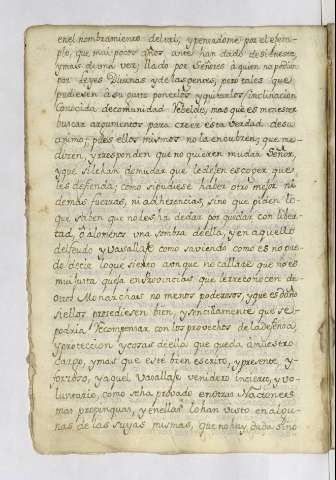 en el nombramiento del rei, y pensadome por el exem-
plo, que mui pocos años ante han dado de si mesmo,
y mas de una vez, llado por Señores à quien no podian
por leyes Divinas y de las gentes, pero tales que
pudiesen à su gusto ponerlos y quitarlos, inclinacion
conocida de comunidad Rebelde, mas que es menester
buscar argumentos para creer esta verdad de su
animo, pues ellos mismos no la encubren, que me
dicen, y responden que no quieren mudar Señor,
y que si le han de mudar que le dejen escoger que
les defienda, como si pudiese haber otro mejor ni
de mas fuerzas, ni adherencias, sino que piden lo
que saben que no les ha de dar por quedar con liber-
tad, ò alomenos una sombra de ella, y en aquello
del feudo y Vasallaje como saviendo como es no pue-
de decir lo que siento aunque no callaré que no es
mui justa queja en Provincias que le reconocen de
otros Monarchas no menos poderosos, y que es daño
si ellos procediesen bien, y sencillamente que se
podria Recompensar con los provechos de la defensa,
y proteccion y cosas de ella que queda à nuestro
cargo, y mas que este bien es cierto, y presente, y
forzoso, y aquel Vasallaje venidero incierto, y vo-
luntario, como se ha provado en otras Naciones
mas propinquas, y en ellas lo han visto en algu-
nas de las suyas mismas, que no hay duda sino